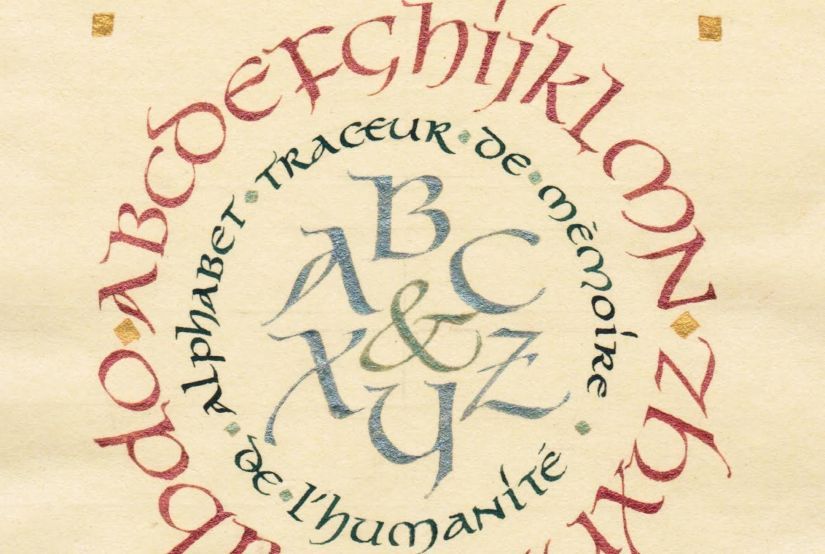 ABCDEFGhijklMN
opq xyz
Alphabet · traceur · de · mémoire
· de · l'humanité ·
ABC
&
XYZ